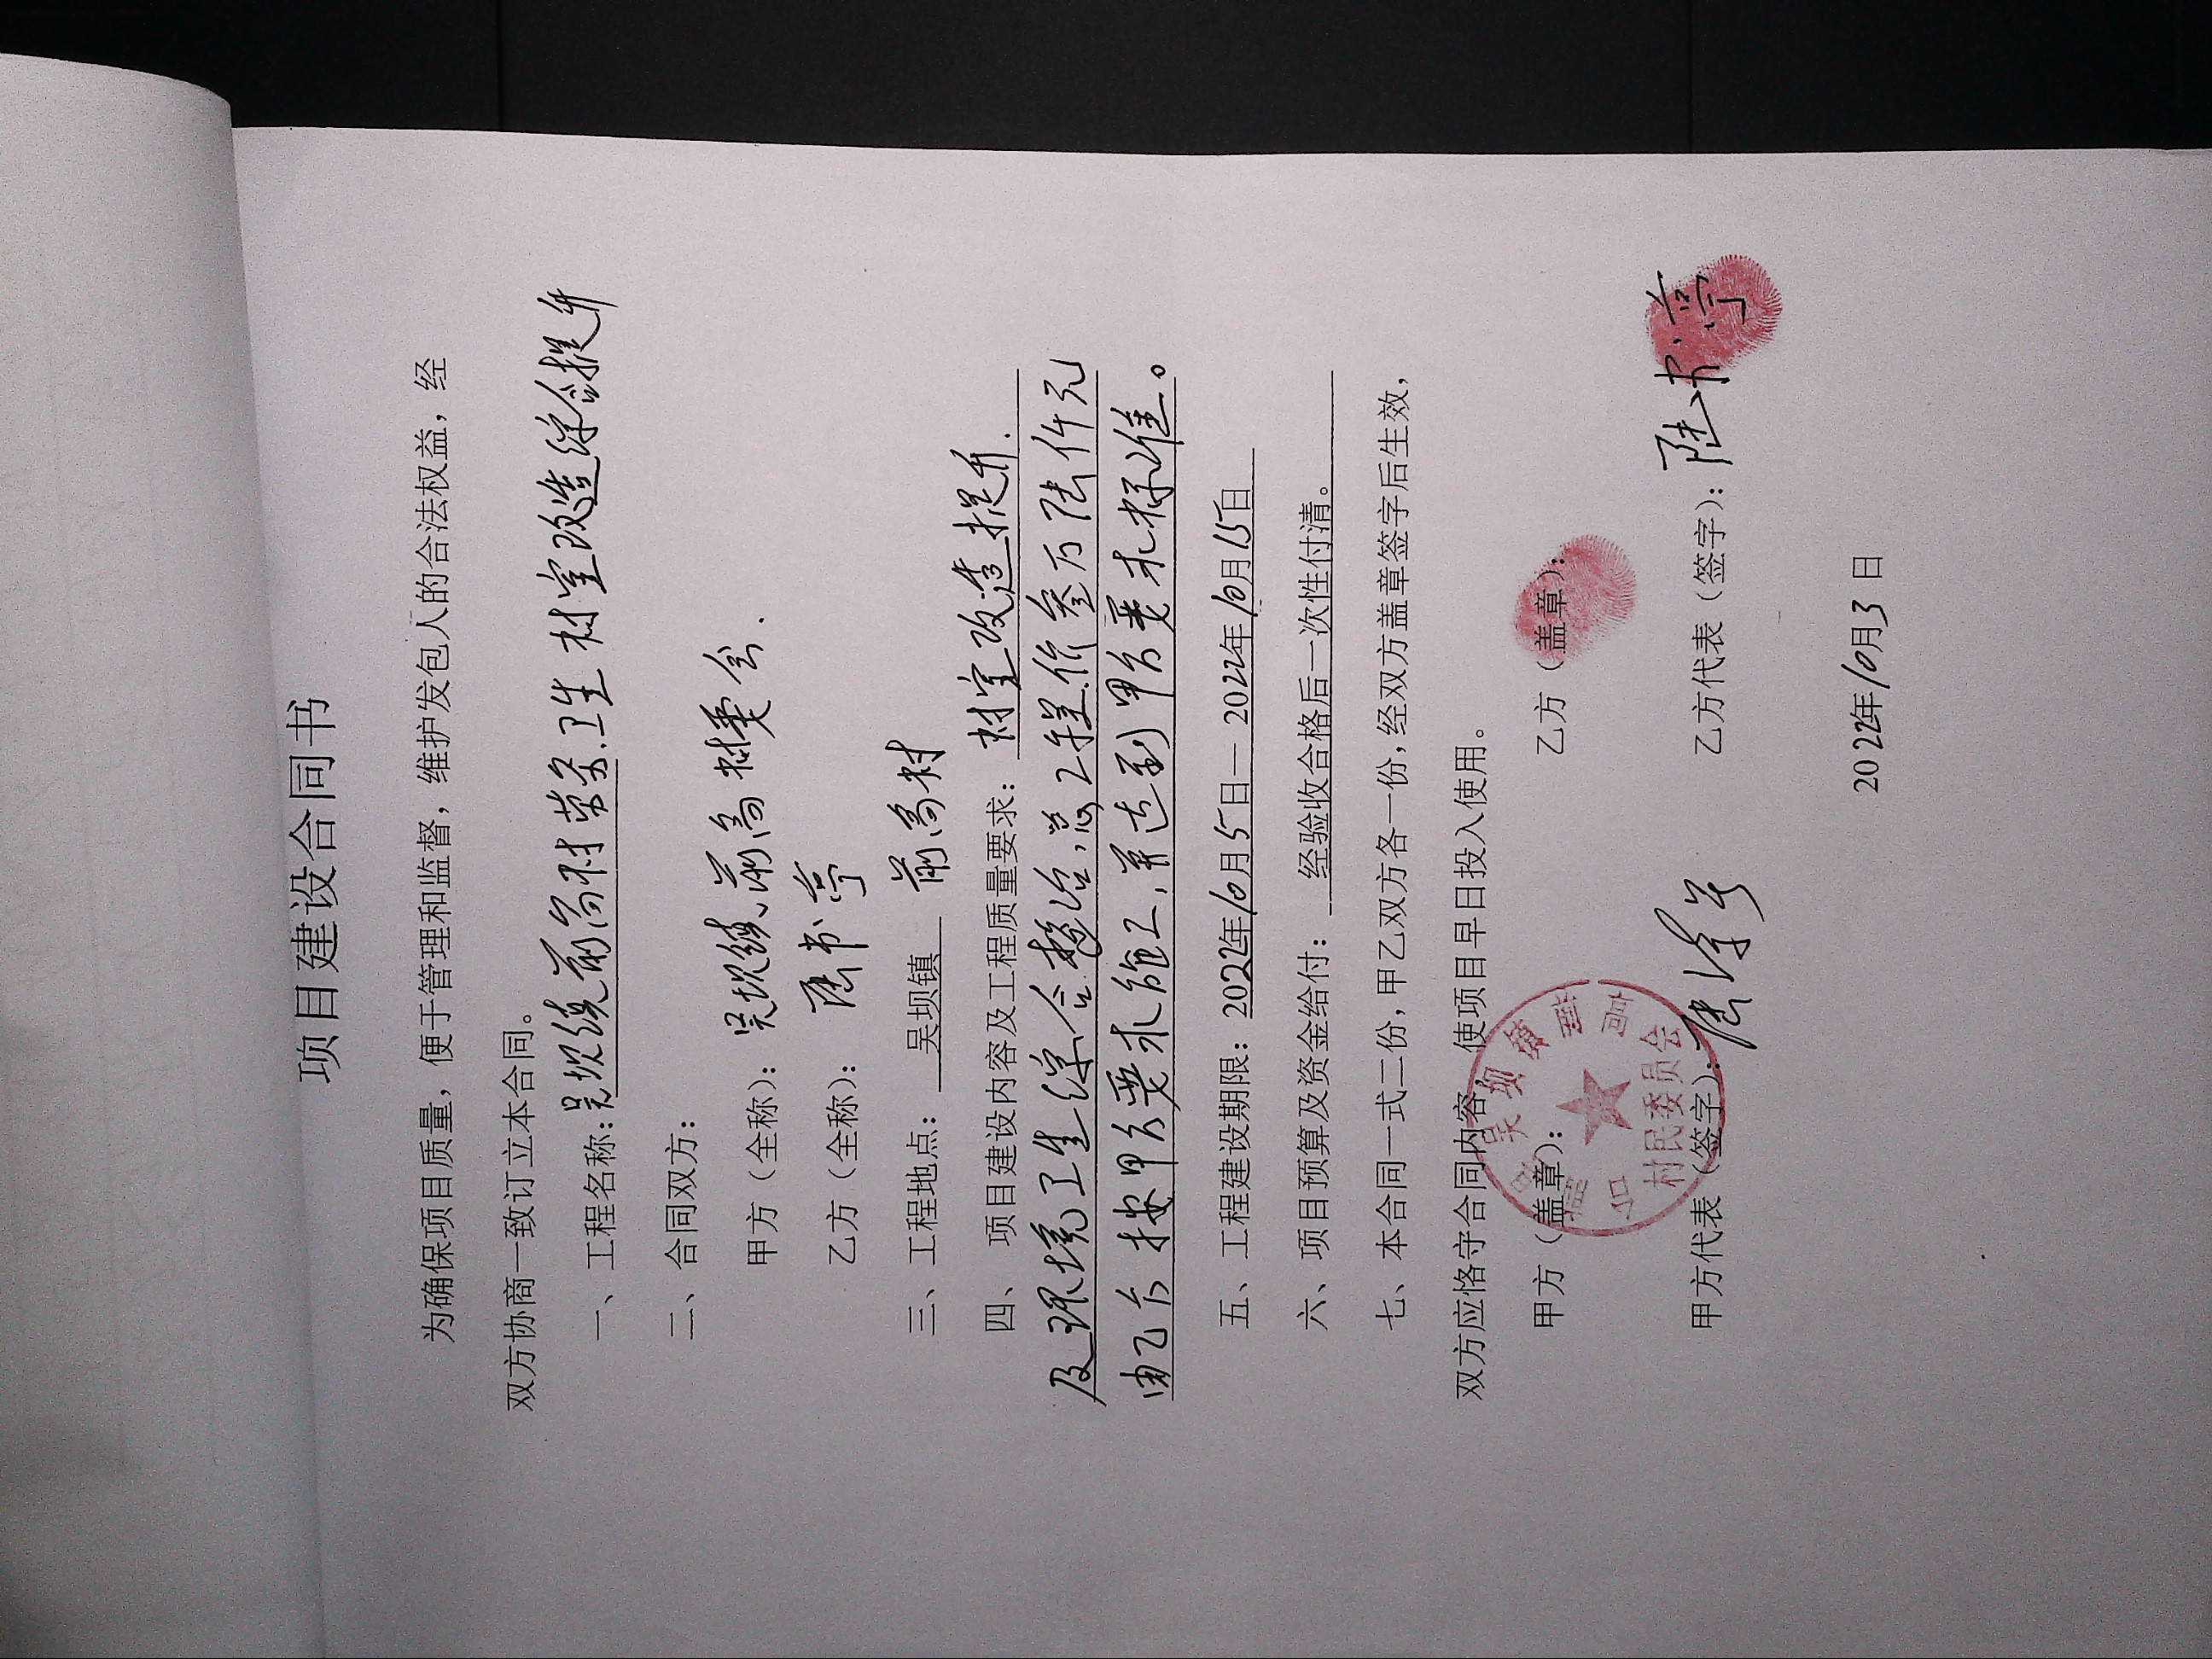 项目建设合同书
为确保项目质量，便于管理和监督，维护发包人的合法权益，经
双方协商一致订立本合同。
一、工程名称：吴坝镇前高村 卫生村室改造综合提升
二、合同双方：
甲方（全称）：吴坝镇前高村委会.
乙方（全称）：陆书亭
三、工程地点：吴坝镇 前高村
四、项目建设内容及工程质量要求：村室改造提升.
及环境卫生综合整治,总工程价叁万陆仟元
由乙方按甲方要求施工,并达到甲方要求标准。
五、工程建设期限：2022年10月5日—2022年10月15日
六、项目预算及资金给付：经验收合格后一次性付清。
七、本合同一式二份，甲乙双方各一份，经双方盖章签字后生效，
双方应恪守合同内容，使项目早日投入使用。
甲方（盖章）： 乙方（盖章）：
吴坝镇前高
村民委员会
甲方代表（签字）： 乙方代表（签字）：陆书亭
2022年10月3日